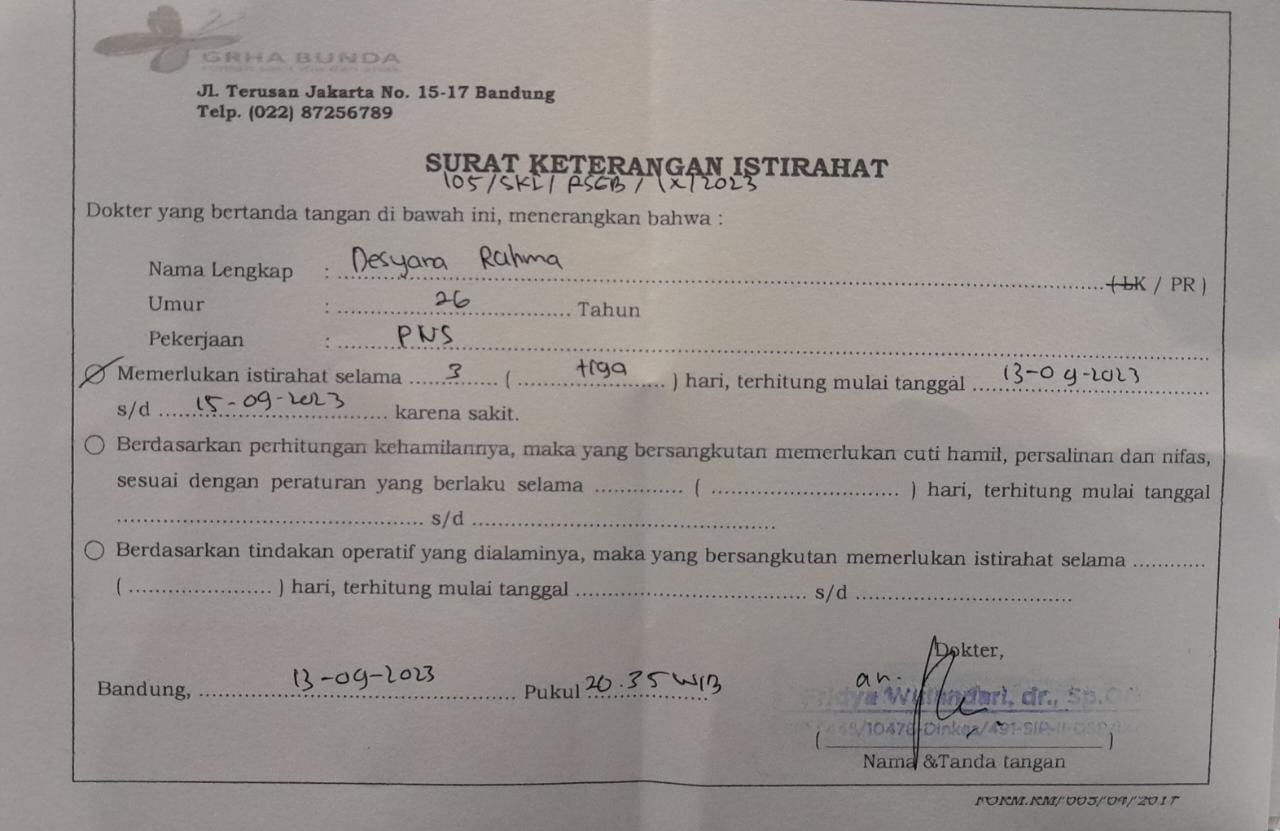 GRHA BUNDA
Jl. Terusan Jakarta No. 15-17 Bandung
Telp. (022) 87256789
SURAT KETERANGAN ISTIRAHAT
105/SKI/RSGB/IX/2023
Dokter yang bertanda tangan di bawah ini, menerangkan bahwa :
Nama Lengkap : Desyara Rahma (LK / PR)
Umur : 26 Tahun
Pekerjaan : PNS
Memerlukan istirahat selama 3 ( tiga ) hari, terhitung mulai tanggal 13-09-2023
s/d 15-09-2023 karena sakit.
Berdasarkan perhitungan kehamilannya, maka yang bersangkutan memerlukan cuti hamil, persalinan dan nifas,
sesuai dengan peraturan yang berlaku selama ............. ( ............................ ) hari, terhitung mulai tanggal
.............................................. s/d ..............................................
Berdasarkan tindakan operatif yang dialaminya, maka yang bersangkutan memerlukan istirahat selama ...........
( ...................... ) hari, terhitung mulai tanggal ................................... s/d .................................
Dokter,
Bandung, 13-09-2023 Pukul 20.35 WIB
an.
dr., Sp.OG
/10478-Dinkes/491-SIP-II-
( )
Nama &Tanda tangan
FORM.RM/003/09/2017